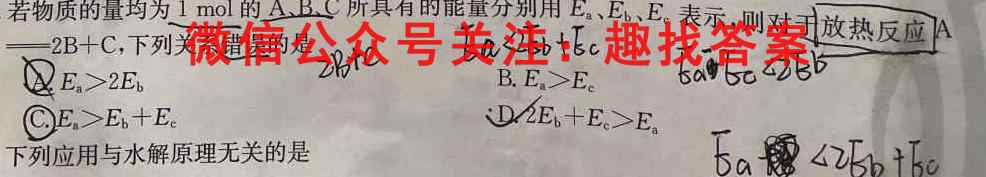 若物质的量均为1 mol的A、B、C所具有的能量分别用Eₐ、E_b、E_c表示,则对于放热反应A
══2B+C,下列关系错误的是
微信公众号关注:趣找答案
2B+C
Ea<2Eb
A. Eₐ>2E_b B. Eₐ>E_c
C. Eₐ>E_b+E_c D. 2E_b+E_c>Eₐ
下列应用与水解原理无关的是
Ea <2Eb+Ec